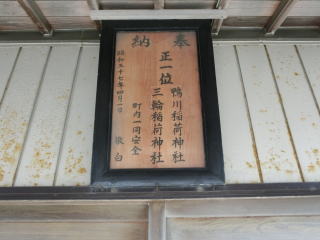 奉納
正一位
鴨川稲荷神社
三輪稲荷神社
町内一同安全
敬白
昭和五十七年四月一日